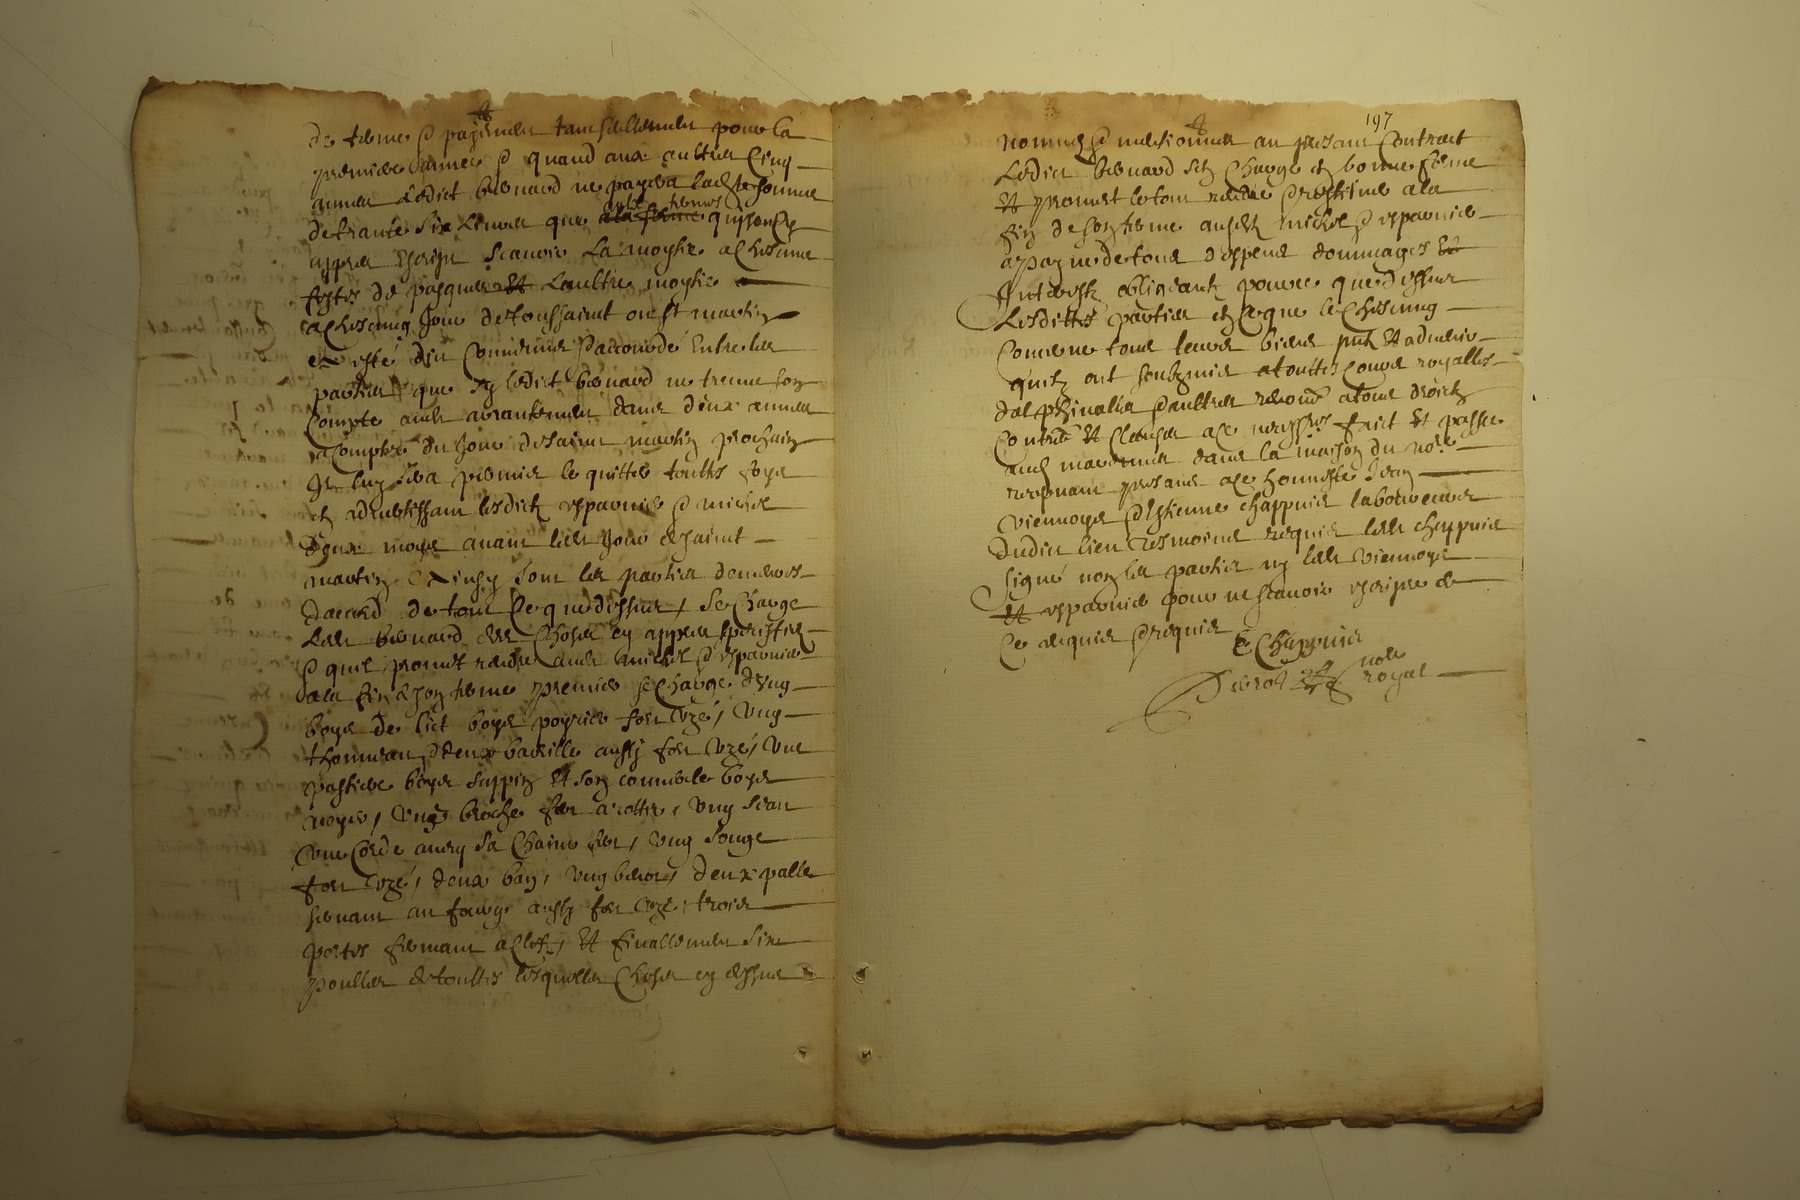 de terme & payement tant seullement pour la
premiere année & quand aux aultres cinq
annees ledict bernard ne payera lad somme
de trante six livres que aulx termes qui sont cy
appres escript scavoir la moytie a chescune
festes de pasques et laultre moytie
a chescung jour de toussaint ou st martin
a esté dit convenus & accordé entre les
parties que sy ledict bernard ne treuve son
compte aud arrantement dans deux annees
a compter du jour de saint martin prochain
Il luy sera permis le quitter toutes foys
en advertissant lesdicts esparvier & michel
deux moys avant led jour de saint
martin & ainsy sont les parties demeures
daccord de tout ce que dessus, se charge
led bernard des choses cy appres speciffiees
& quil promet rendre aud michel & esparvier
a la fin de son terme premier se charge dung
boys de lict boys poyrier fort usé, ung
thonneau & deux barille aussy fort usé, une
pastiere boys sappin et son couvercle boys
noyer, ung broche fer a rottir, ung seau
une corde avecq sa chaine fer, ung
fort usé, deux ban, ung, deux palle
servant au fourg aussy fort usé, trois
portes fermant a clefz, et finallement six
poulles de touttes lesquelles choses cy dessus
197
nommes & mentionnes au presant contract
ledict bernard sen charge en bonne forme
et promet le tout rendre & restituer a la
fin de son terme ausd michel & esparvier
a payne de tous despens dommages et
Interestz obligeantz pource que dessus
lesdittes parties en ce que le chescung
concerne tous leurs biens pntz et advenir
quilz ont soubzmis a touttes cours royalles
dalphinalles & aultres renonce a tous droictz
contre et clauses a ce necess res faict et passe
aud dans la maison du no re
recepvant presans a ce honneste Jean
viennoys & Estienne chappuis laboureurs
dudit lieu tesmoins requis led chappuis
signé non les parties ny led viennoys
et esparvier pour ne scavoir escripre de
ce enquis & requis
E Chappuis
no re
royal